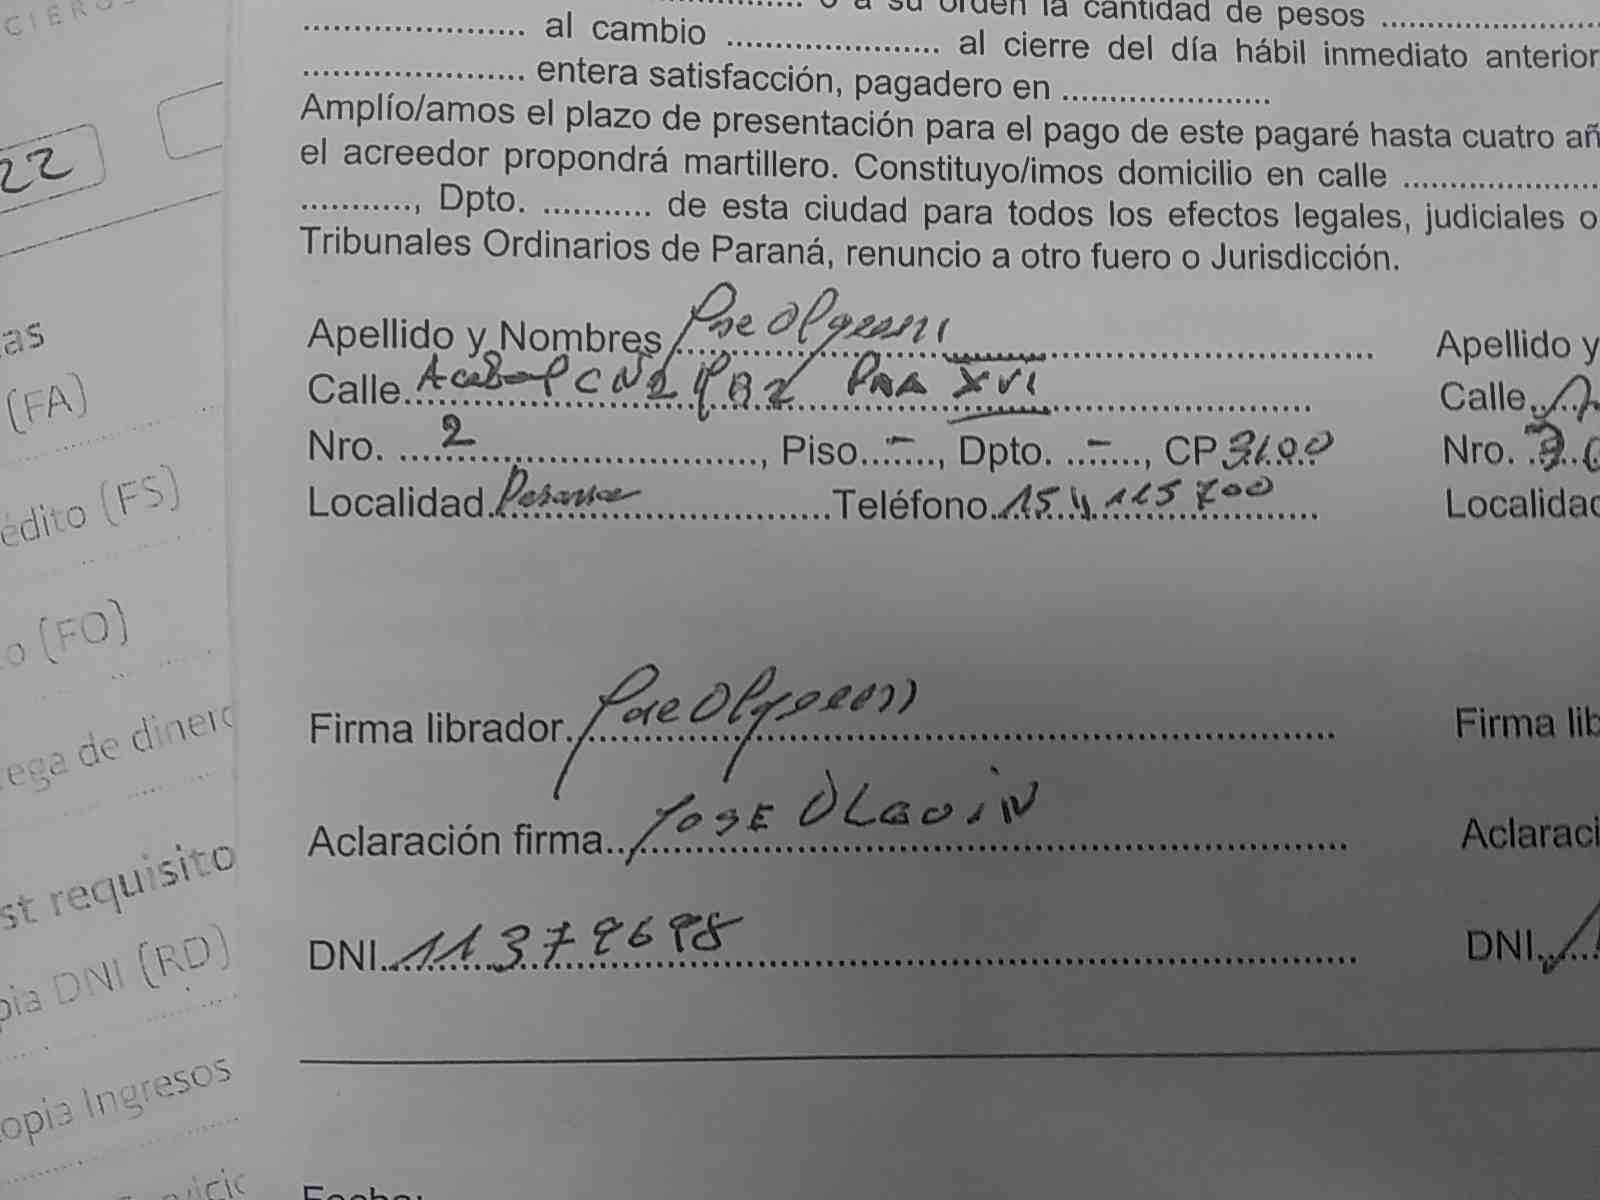 CIEROS
22
as
(FA)
édito (FS)
o (FO)
ega de dinero
st requisito
pia DNI (RD)
opia Ingresos
o a su orden la cantidad de pesos ........................
....................... al cambio ...................... al cierre del día hábil inmediato anterior
....................... entera satisfacción, pagadero en ......................
Amplío/amos el plazo de presentación para el pago de este pagaré hasta cuatro añ
el acreedor propondrá martillero. Constituyo/imos domicilio en calle ....................
............, Dpto. ............ de esta ciudad para todos los efectos legales, judiciales o
Tribunales Ordinarios de Paraná, renuncio a otro fuero o Jurisdicción.
Apellido y Nombres
Calle XVI
Nro. 2, Piso - , Dpto. - , CP 3100
Localidad Parana Teléfono 154 115700
Firma librador
Aclaración firma JOSE OLGUIN
DNI 11379698
Apellido y
Calle
Nro.
Localidad
Firma lib
Aclaraci
DNI
Fecha: